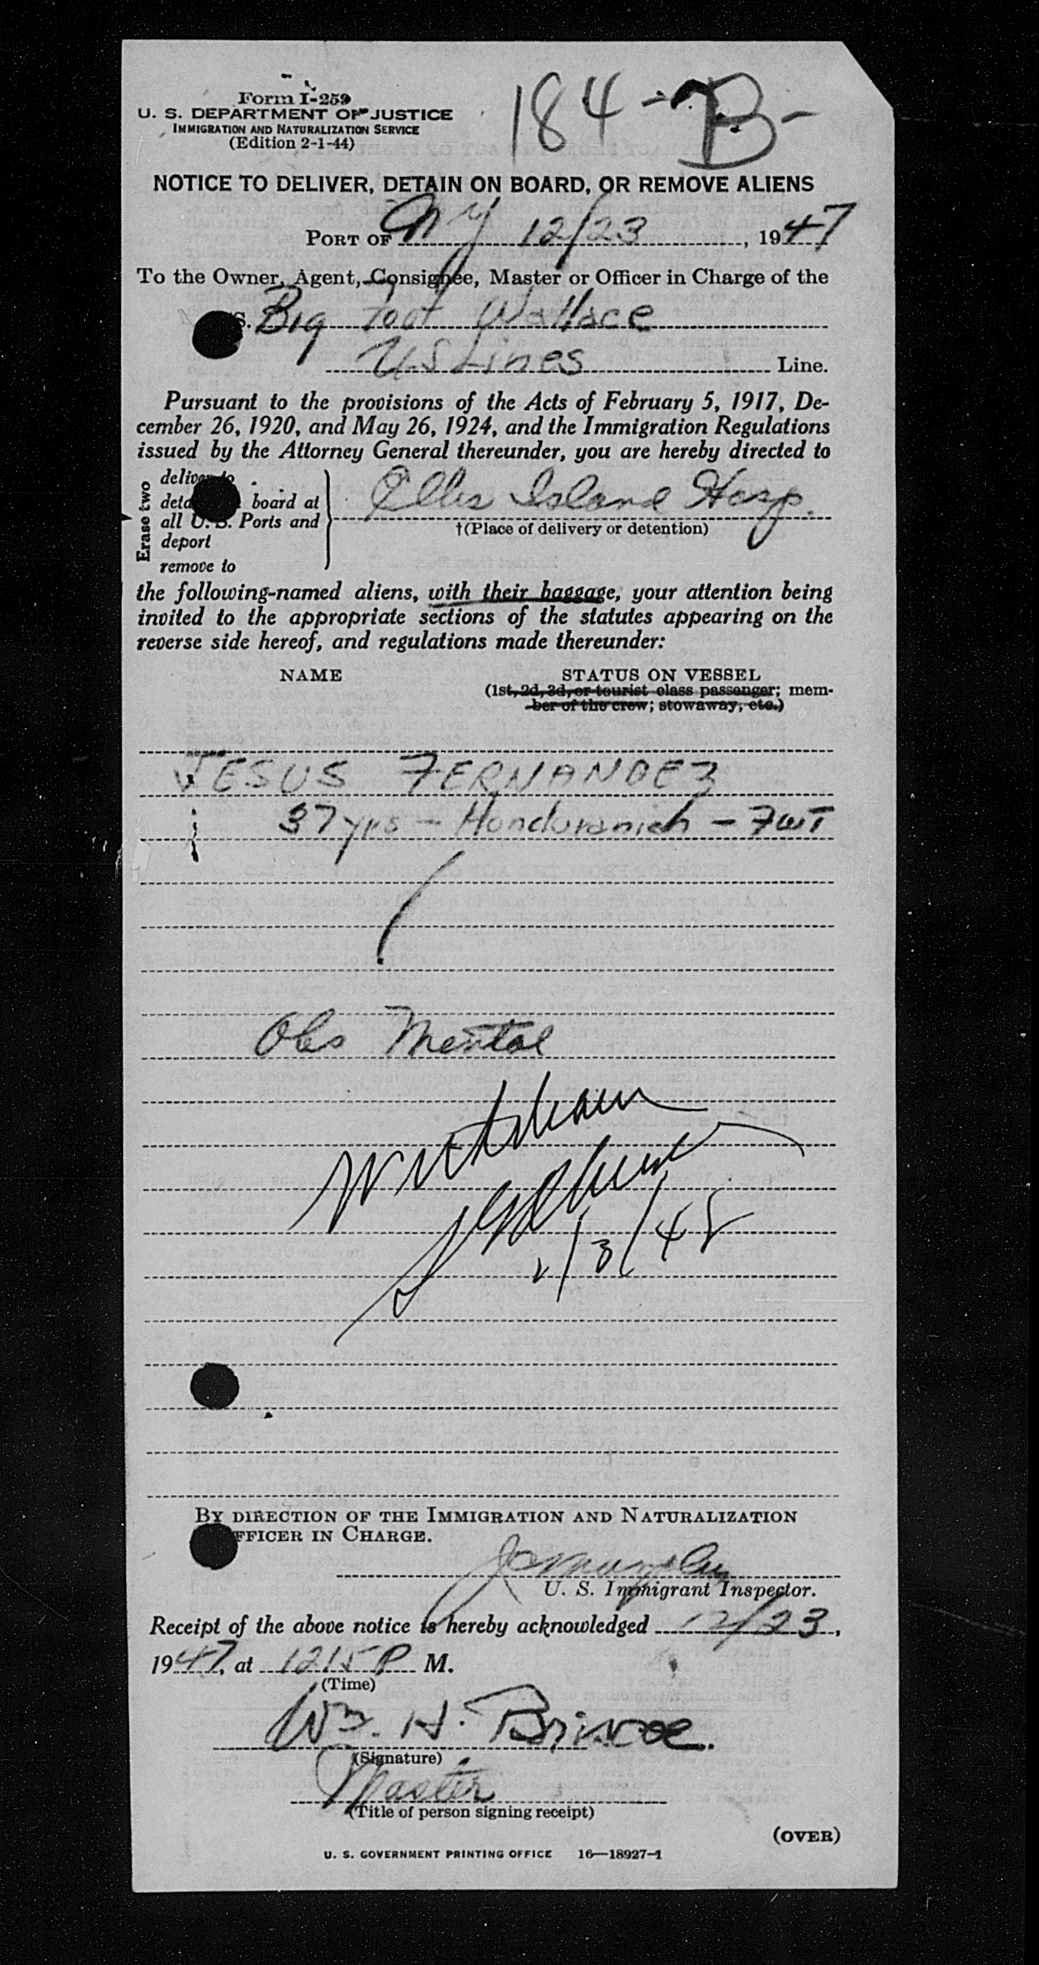 184-B-
Form I-259
U. S. DEPARTMENT OF JUSTICE
IMMIGRATION AND NATURALIZATION SERVICE
(Edition 2-1-44)
NOTICE TO DELIVER, DETAIN ON BOARD, OR REMOVE ALIENS
PORT OF NY 12/23, 1947
To the Owner, Agent, Consignee, Master or Officer in Charge of the
S. Big Foot Wallace
US Lines Line.
Pursuant to the provisions of the Acts of February 5, 1917, De-
cember 26, 1920, and May 26, 1924, and the Immigration Regulations
issued by the Attorney General thereunder, you are hereby directed to
Erase two
deliver to
board at
all U. S. Ports and
deport
remove to
Ellis Island Hosp.
†(Place of delivery or detention)
the following-named aliens, with their baggage, your attention being
invited to the appropriate sections of the statutes appearing on the
reverse side hereof, and regulations made thereunder:
NAME STATUS ON VESSEL
(1st, 2d, 3d, or tourist class passenger; mem-
ber of the crew; stowaway, etc.)
JESUS FERNANDEZ
37 yrs - Honduranian - FWT
Obs Mental
2/3/48
BY DIRECTION OF THE IMMIGRATION AND NATURALIZATION
FFICER IN CHARGE.
U. S. Immigrant Inspector.
Receipt of the above notice is hereby acknowledged 12/23,
1947, at 1215 P M.
(Time)
Wm. H. Briscoe.
(Signature)
Master
(Title of person signing receipt)
(OVER)
U. S. GOVERNMENT PRINTING OFFICE 16—18927-1